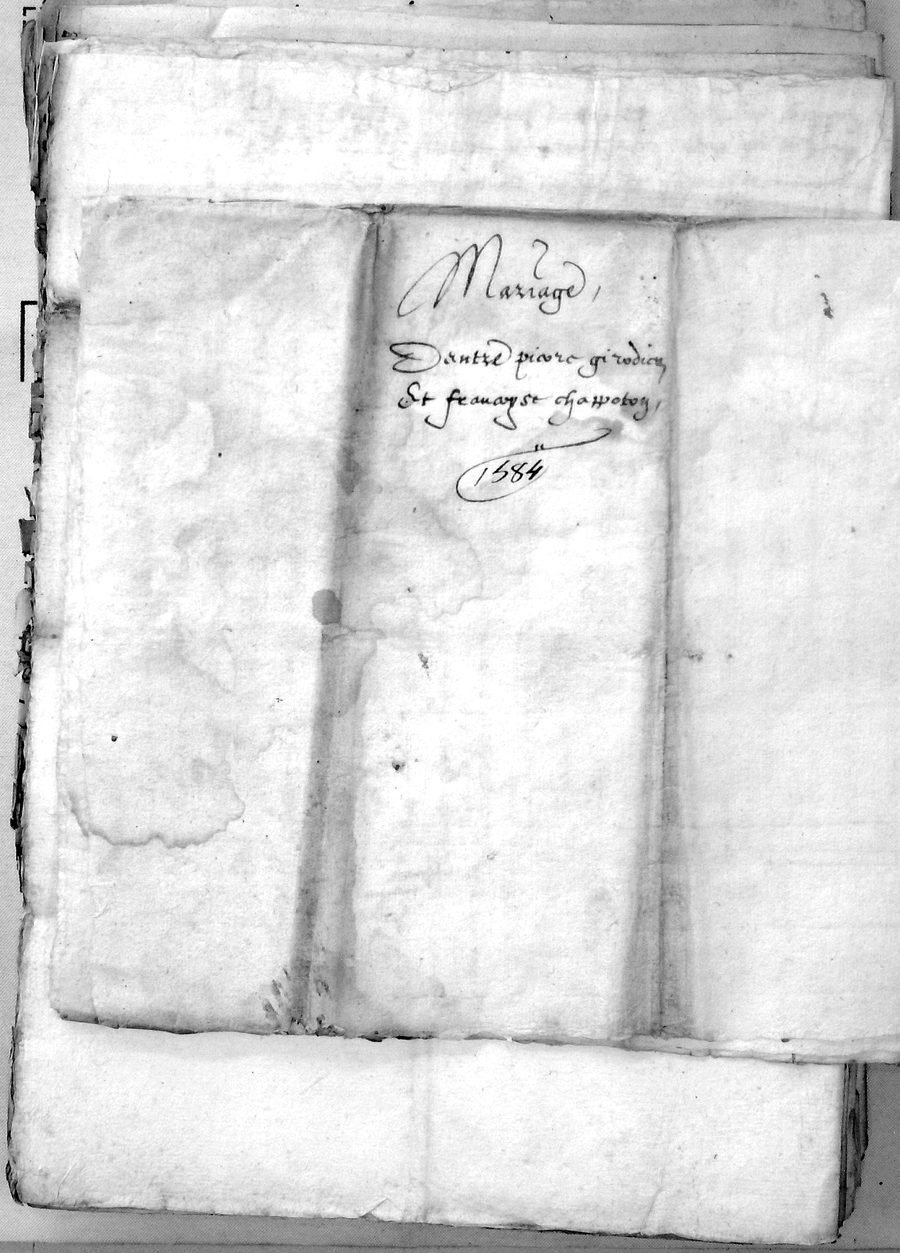 Mariage,
Dentre pierre girodien
Et francoyse chappoton,
1584